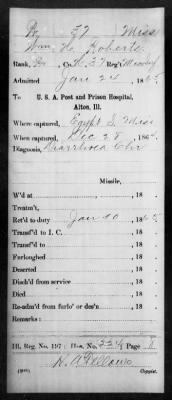 R 37 Miss
Wm H. Roberts
Rank, Co. K. 37 Reg't
Admitted Jan 24 186
To U. S. A. Post and Prison Hospital,
Alton, Ill.
Where captured, Egypt S. Miss
When captured, Dec 28 186
Diagnosis, Diarrhoea Chr
Missile,
W'd at , 18
Treatm't, , 18
Ret'd to duty Jan 30 , 186
Transf'd to I. C. , 18
Transf'd to , 18
Furloughed , 18
Deserted , 18
Disch'd from service , 18
Died , 18
Re-adm'd from furlo' or des'n , 18
Remarks :
Ill. Reg. No. 197 ; Hos. No. Page 8
Copyist.